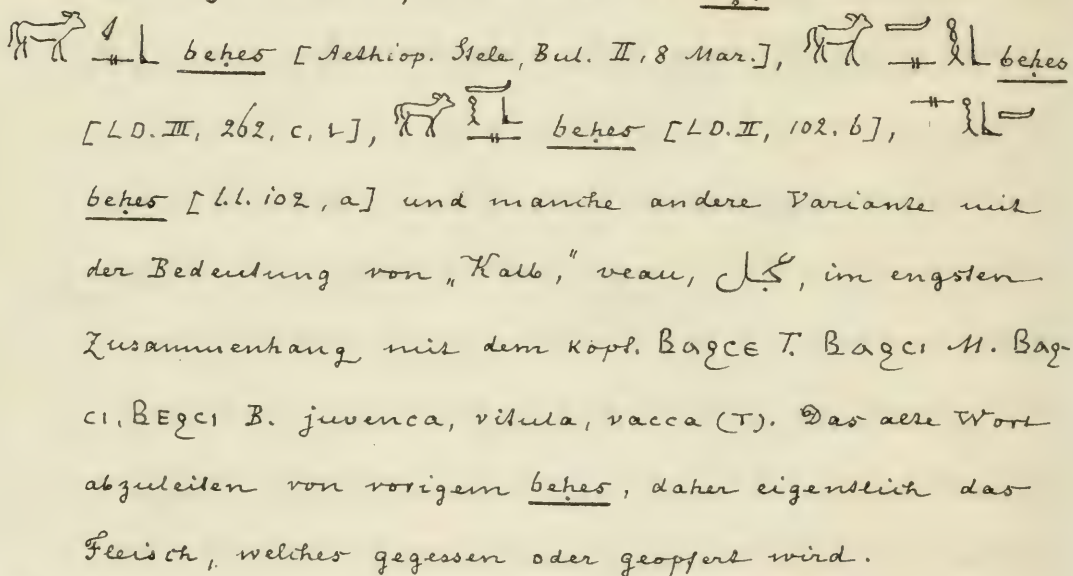 beḥes [Aethiop. Stele, Bul. II, 8 Mar.], beḥes
[LD. III, 262, c, 2], beḥes [LD. II, 102. b],
beḥes [l.l. 102, a] und manche andere Variante mit
der Bedeutung von „Kalb,” veau, عجل, im engsten
Zusammenhang mit dem Kopt. ⲃⲁϩⲥⲉ T. ⲃⲁϩⲥⲓ M. ⲃⲁϩ-
ⲥⲓ, ⲃⲉϩⲥⲓ B. juvenca, vitula, vacca (T). Das alte Wort
abzuleiten von vorigem beḥes, daher eigentlich das
Fleisch, welches gegessen oder geopfert wird.